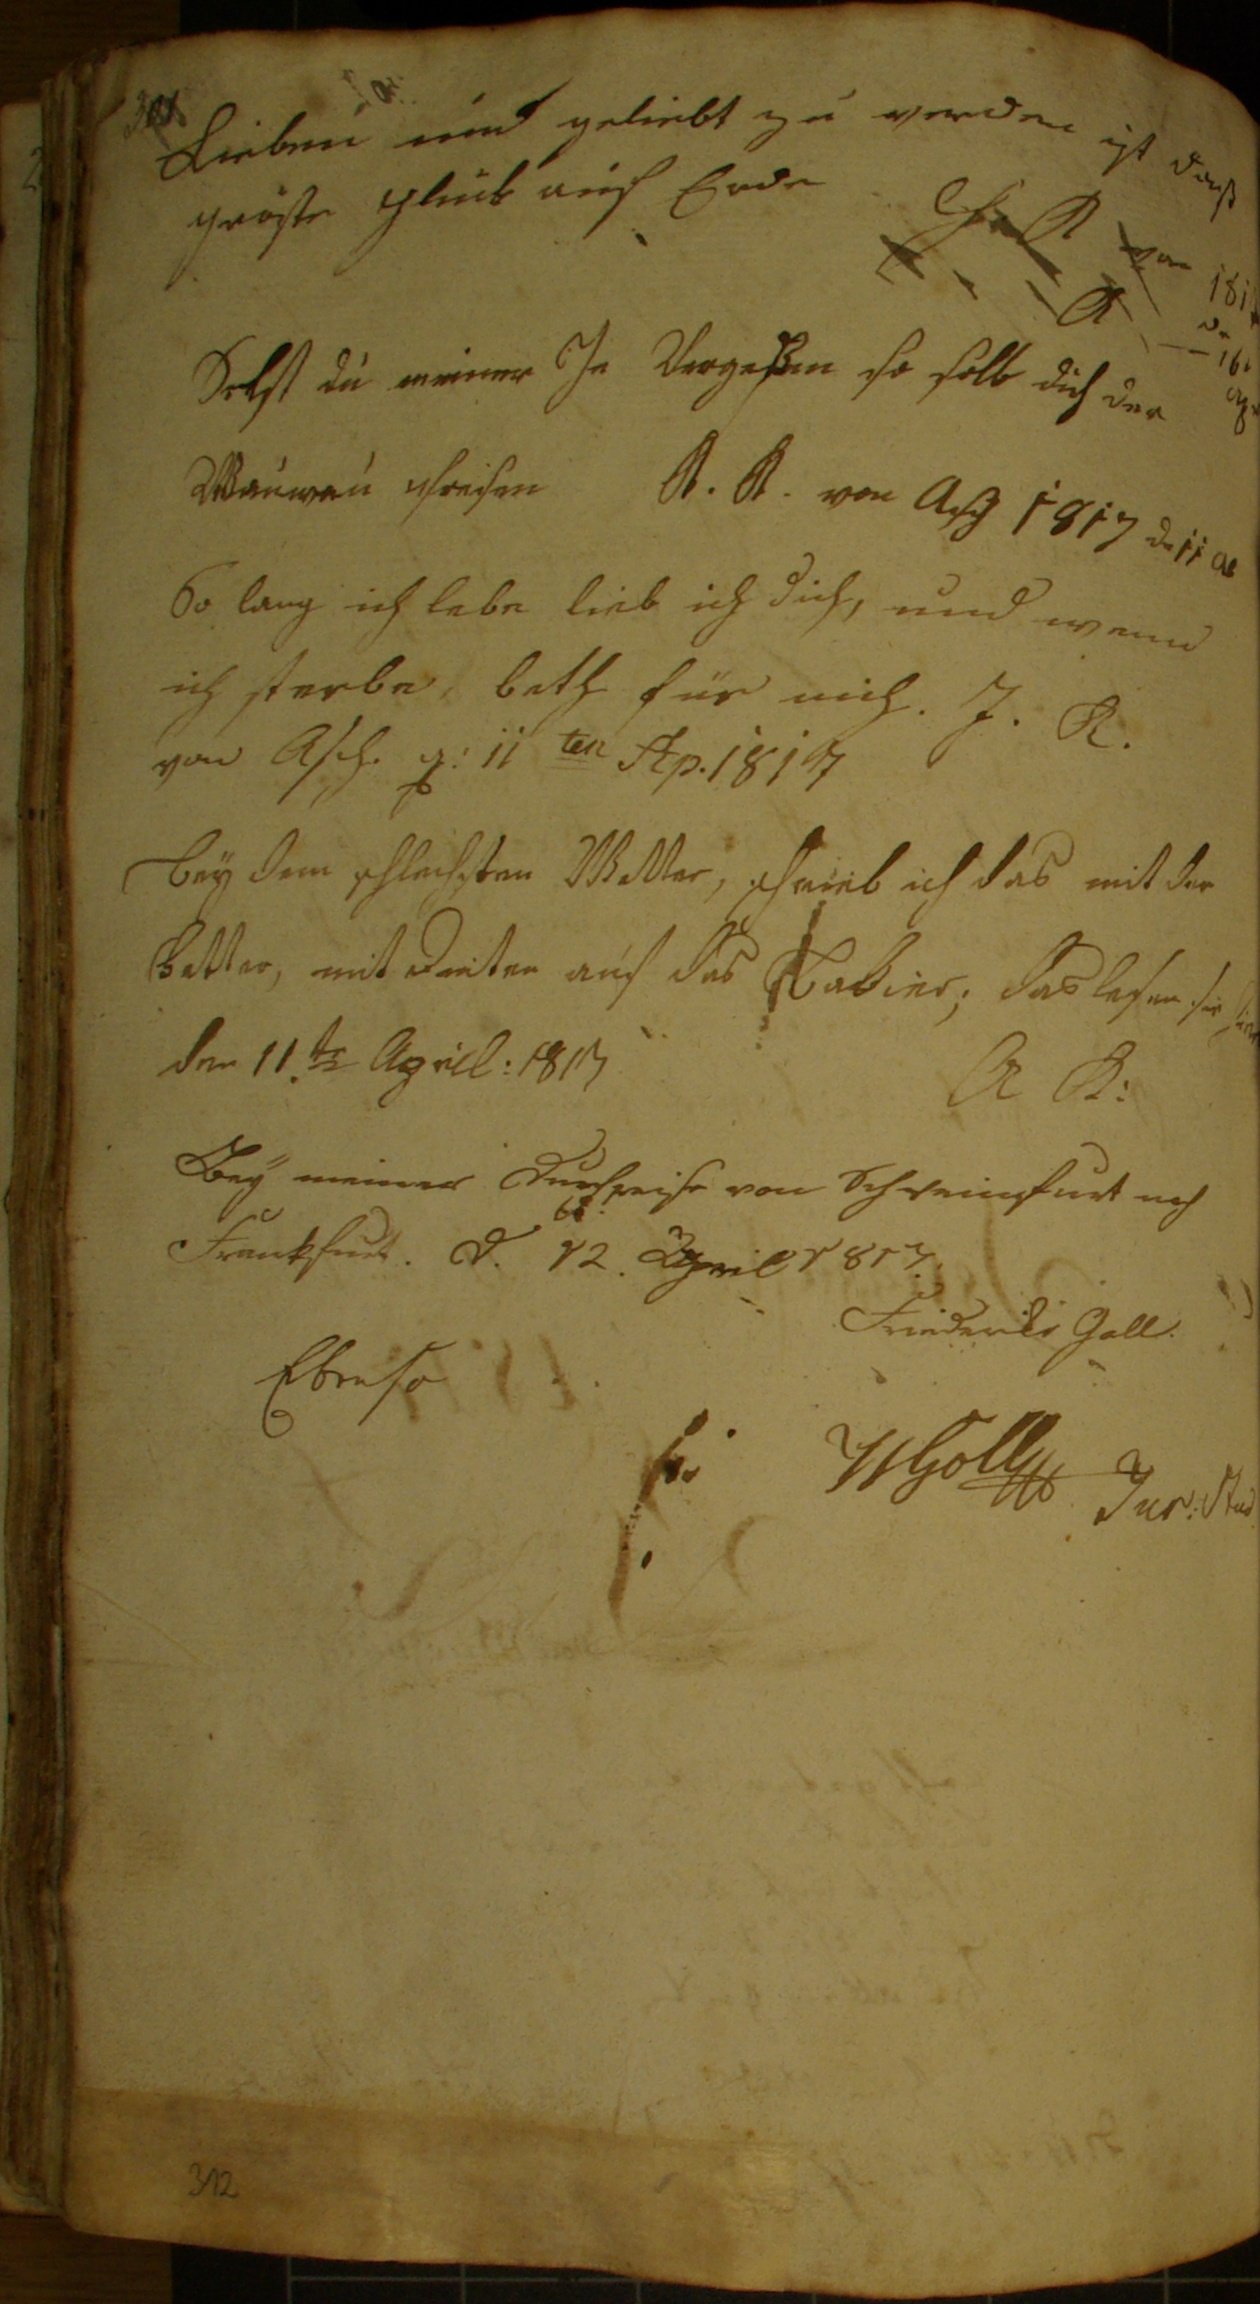 Lieben und geliebt zu werden ist daß
gröste Glük auf Erde
Ch. K von 181
K
Solst du meiner Je Vergeßen so solle dich der
Wauwau freßen K. K. von Asch 1817 de 11 Ab
So lang ich lebe lieb ich dich, und wenn
ich sterbe, beth für mich. J. K.
von Asch. d: 11 ten Ap. 1817
Bey dem schlechsten Wetter, schrieb ich das mit der
Fetter, mit Dinten auf das Babier; das lesen sie hier
den 11.te April: 1817 A K:
Bey meiner Durchreise von Schweinfurt nach
Frankfurt. d. 12. April 1817.
Friederike Goll.
Ebenso
W Goll Jur: Stud
312